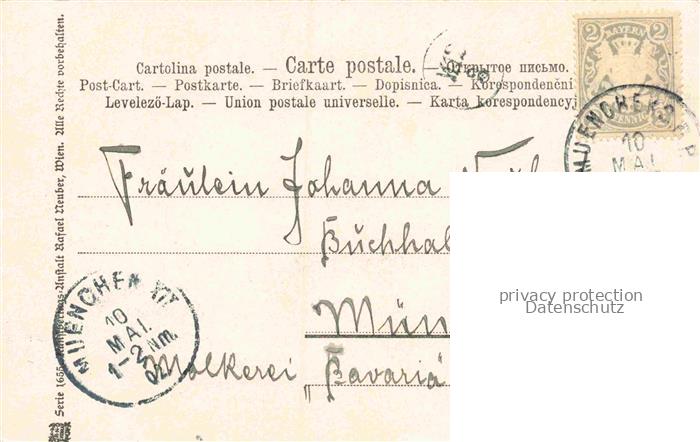 Cartolina postale. — Carte postale. — Открытое письмо.
Post-Cart. — Postkarte. — Briefkaart. — Dopisnica. — Korespondenčni
Levelező-Lap. — Union postale universelle. — Karta korespondencyj
2 BAYERN 2
PFENNIG
MUENCHEN
10
MAI
Fräulein Johanna
Buchhal
Mün
Molkerei „Bavaria"
MUENCHEN XII
10
MAI.
1-2 Nm.
02
privacy protection
Datenschutz
Serie 1655. Kunstverlags-Anstalt Rafael Neuber, Wien. Alle Rechte vorbehalten.